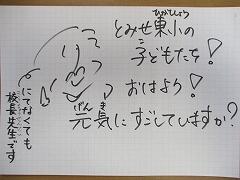 とみせ東小の
ひがししょう
子どもたち!
こ
おはよう!
元気にすごしていますか?
げんき
にてなくても
校長先生です